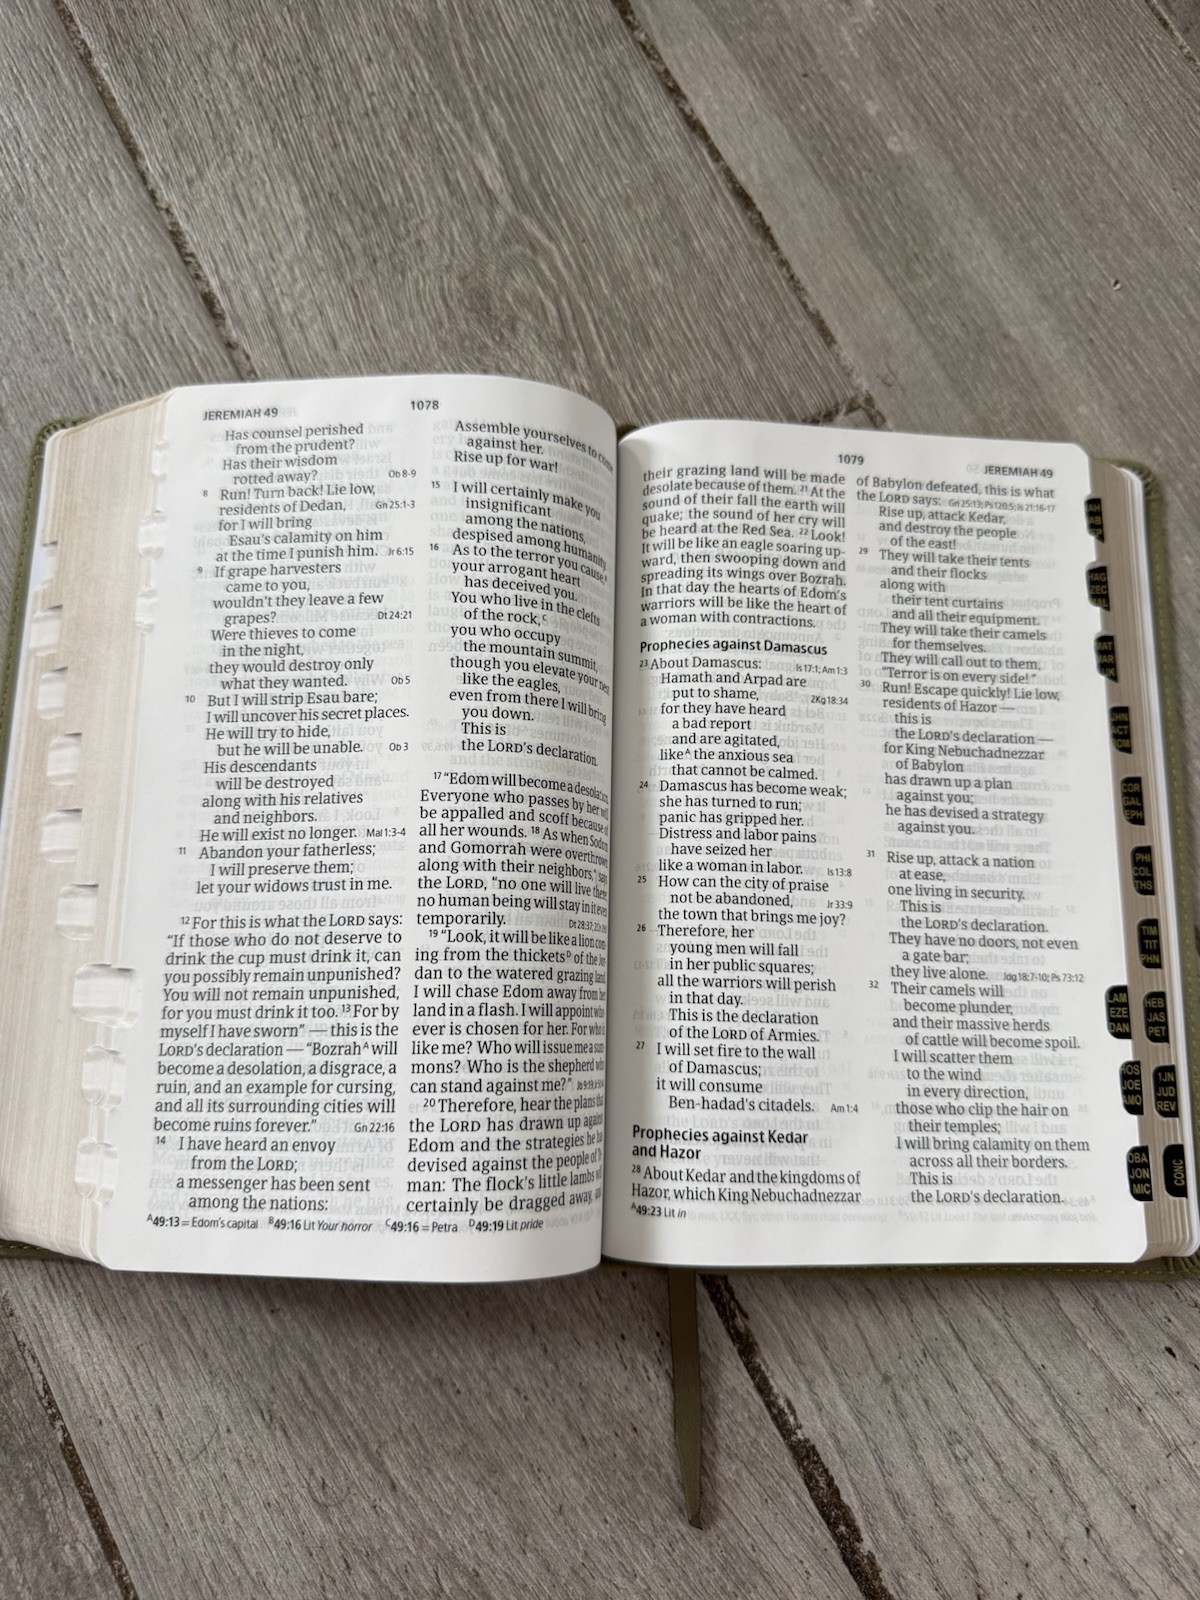 JEREMIAH 49
1078
Has counsel perished
from the prudent?
Has their wisdom
rotted away? Ob 8-9
8 Run! Turn back! Lie low,
residents of Dedan, Gn 25:1-3
for I will bring
Esau's calamity on him
at the time I punish him. Jr 6:15
9 If grape harvesters
came to you,
wouldn't they leave a few
grapes? Dt 24:21
Were thieves to come
in the night,
they would destroy only
what they wanted. Ob 5
10 But I will strip Esau bare;
I will uncover his secret places.
He will try to hide,
but he will be unable. Ob 3
His descendants
will be destroyed
along with his relatives
and neighbors.
He will exist no longer. Mal 1:3-4
11 Abandon your fatherless;
I will preserve them;
let your widows trust in me.
12 For this is what the LORD says:
"If those who do not deserve to
drink the cup must drink it, can
you possibly remain unpunished?
You will not remain unpunished,
for you must drink it too. 13 For by
myself I have sworn" — this is the
LORD's declaration — "Bozrah^A will
become a desolation, a disgrace, a
ruin, and an example for cursing,
and all its surrounding cities will
become ruins forever." Gn 22:16
14 I have heard an envoy
from the LORD;
a messenger has been sent
among the nations:
Assemble yourselves to come
against her.
Rise up for war!
15 I will certainly make you
insignificant
among the nations,
despised among humanity.
16 As to the terror you cause,
your arrogant heart
has deceived you.
You who live in the clefts
of the rock,^C
you who occupy
the mountain summit,
though you elevate your nest
like the eagles,
even from there I will bring
you down.
This is
the LORD's declaration.
17 "Edom will become a desolation.
Everyone who passes by her will
be appalled and scoff because of
all her wounds. 18 As when Sodom
and Gomorrah were overthrown
along with their neighbors," says
the LORD, "no one will live there;
no human being will stay in it even
temporarily. Dt 28:37
19 "Look, it will be like a lion com-
ing from the thickets^D of the Jor-
dan to the watered grazing land.
I will chase Edom away from her
land in a flash. I will appoint who-
ever is chosen for her. For who is
like me? Who will issue me a sum-
mons? Who is the shepherd who
can stand against me?"
20 Therefore, hear the plans that
the LORD has drawn up against
Edom and the strategies he has
devised against the people of Te-
man: The flock's little lambs will
certainly be dragged away, and
^A 49:13 = Edom's capital ^B 49:16 Lit Your horror ^C 49:16 = Petra ^D 49:19 Lit pride
1079
JEREMIAH 49
their grazing land will be made
desolate because of them. 21 At the
sound of their fall the earth will
quake; the sound of her cry will
be heard at the Red Sea. 22 Look!
It will be like an eagle soaring up-
ward, then swooping down and
spreading its wings over Bozrah.
In that day the hearts of Edom's
warriors will be like the heart of
a woman with contractions.
Prophecies against Damascus
23 About Damascus: Is 17:1; Am 1:3
Hamath and Arpad are
put to shame, 2Kg 18:34
for they have heard
a bad report
and are agitated,
like^A the anxious sea
that cannot be calmed.
24 Damascus has become weak;
she has turned to run;
panic has gripped her.
Distress and labor pains
have seized her
like a woman in labor. Is 13:8
25 How can the city of praise
not be abandoned, Jr 33:9
the town that brings me joy?
26 Therefore, her
young men will fall
in her public squares;
all the warriors will perish
in that day.
This is the declaration
of the LORD of Armies.
27 I will set fire to the wall
of Damascus;
it will consume
Ben-hadad's citadels. Am 1:4
Prophecies against Kedar
and Hazor
28 About Kedar and the kingdoms of
Hazor, which King Nebuchadnezzar
^A 49:23 Lit in
of Babylon defeated, this is what
the LORD says: Gn 25:13; Ps 120:5; Is 21:16-17
Rise up, attack Kedar,
and destroy the people
of the east!
29 They will take their tents
and their flocks
along with
their tent curtains
and all their equipment.
They will take their camels
for themselves.
They will call out to them,
"Terror is on every side!"
30 Run! Escape quickly! Lie low,
residents of Hazor —
this is
the LORD's declaration —
for King Nebuchadnezzar
of Babylon
has drawn up a plan
against you;
he has devised a strategy
against you.
31 Rise up, attack a nation
at ease,
one living in security.
This is
the LORD's declaration.
They have no doors, not even
a gate bar;
they live alone. Jdg 18:7-10; Ps 73:12
32 Their camels will
become plunder,
and their massive herds
of cattle will become spoil.
I will scatter them
to the wind
in every direction,
those who clip the hair on
their temples;
I will bring calamity on them
across all their borders.
This is
the LORD's declaration.
HAG
ZEC
MAL
MAT
MAR
JHN
ACT
ROM
COR
GAL
EPH
PHI
COL
THS
TIM
TIT
PHN
LAM
EZE
DAN
HEB
JAS
PET
HOS
JOE
AMO
1JN
JUD
REV
OBA
JON
MIC
CONC